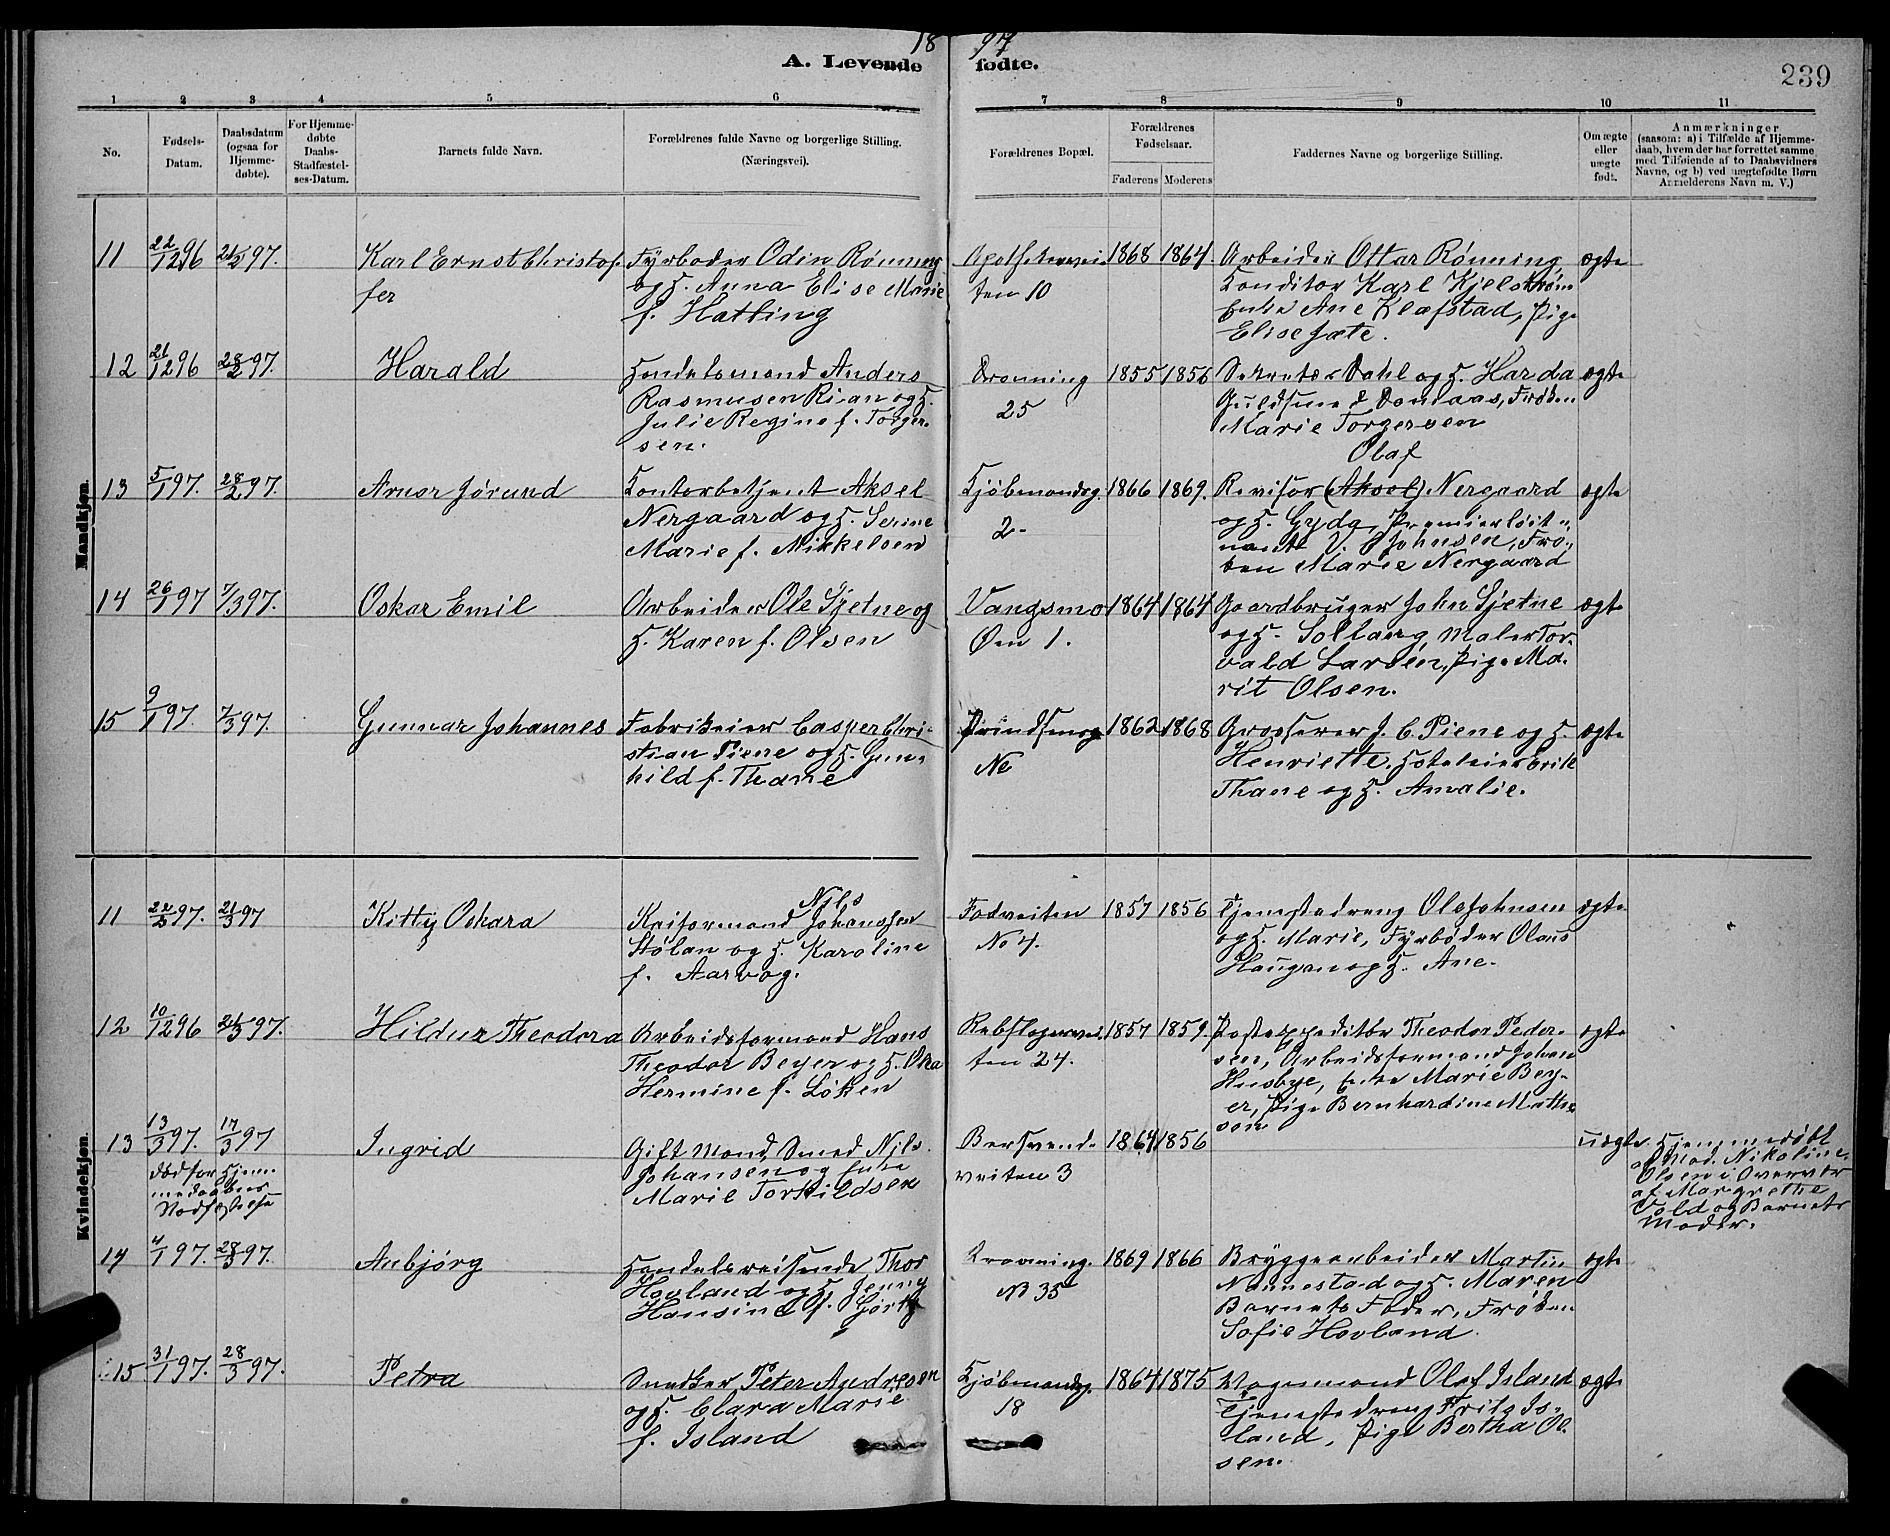 18 97
A. Levende fødte.
239
1 2 3 4 5 6 7 8 9 10 11
No.
Fødsels-
Datum.
Daabsdatum
(ogsaa for
Hjemme-
døbte).
For Hjemme-
døbte
Daabs-
Stadfæstel-
ses-Datum.
Barnets fulde Navn.
Forældrenes fulde Navne og borgerlige Stilling.
(Næringsvei).
Forældrenes Bopæl.
Forældrenes
Fødselsaar.
Faderens Moderens
Faddernes Navne og borgerlige Stilling.
Om ægte
eller
uægte
født.
Anmærkninger
(saasom: a) i Tilfælde af Hjemme-
daab, hvem der har forrettet samme,
med Tilføiende af to Daabsvidners
Navne, og b) ved uægtefødte Børn
Anmelderens Navn m. V.)
Mandkjøn.
11 22/12 96 21/2 97. Karl Ernst Christof-
fer
Fyrbøder Odin Rønning
og H. Anna Elise Marie
f. Hatling
Apothekervei-
ten 10
1868 1864.
Arbeider Ottar Rønning
Konditor Karl Kjelstrøm
Enke Ane Klefstad, Pige
Elise Jæte.
ægte
12 21/12 96 28/2 97. Harald
Handelsmand Anders
Rasmusen Rian og H.
Julie Regine f. Torger-
sen.
Dronning
25
1855 1856
Sekretær Dahl og H. Harda
Guldsmed Donaas, Frøken
Marie Torgersen
ægte
13 5/1 97. 28/2 97. Arnor Jørund
Kontorbetjent Aksel
Nergaard og H. Serine
Marie f. Mikkelsen
Kjøbmandsg.
2-
1866 1869.
Olaf
Revisor (Aksel) Nergaard
og H. Gyda, Premierløit-
nant V. Johnsen, Frø-
ken Marie Nergaard
ægte
14 26/1 97 7/3 97. Oskar Emil
Arbeider Ole Sjetne og
H. Karen f. Olsen
Vangsmo
Øen 1.
1864 1864
Gaardbruger John Sjetne
og H. Sollaug, Maler Tor-
vald Larsen, Pige Ma-
rit Olsen.
ægte
15 9/1 97. 7/3 97. Gunnar Johannes
Fabrikeier Casper Chri-
stian Piene og H. Gun-
hild f. Thane
Prindsensg
No
1862 1868
Grosserer J. C. Piene og H.
Henriette, Hoteleier Erik
Thane og H. Amalie.
ægte
Kvindekjøn.
11 22/2 97. 21/3 97 Kitty Oskara
Nils
Kaiformand Johanssen
Stølan og H. Karoline
f. Aarvog.
Fadveiten
No 4.
1857 1856
Tjenestedreng Ole Johnsen
og H. Marie, Fyrbøder Olaus
Haugen og H. Ane.
ægte
12 10/12 96 21/3 97. Hildur Theodora
Arbeidsformand Hans
Theodor Beyer og H. Oka
Hermine f. Løkken
Rebslagervei-
ten 24.
1857 1859.
Postexpeditør Theodor Peder-
sen, Arbeidsformand Johan
Husbye, Enke Marie Bey-
er, Pige Bernhardine Mathi-
sen
ægte
13 13/3 97. 17/3 97 Ingrid
Gift Mand, Smed Nils
Johansen og Enke
Marie Torkildsen
Bersvend-
veiten 3
1864 1856
uægte
Hjemmedøbt
af Mad. Nikoline
Olsen i Overvær
af Margrethe
Vold og Barnets
Moder.
14 4/1 97. 28/3 97. Anbjørg
Handelsreisende Thor
Hovland og H. Jenny
Hansine f. Gjørtz
Dronning.
No 35
1869 1866
Bryggearbeider Martin
Nannestad og H. Maren
Barnets Fader, Frøken
Sofie Hovland.
ægte
15 31/1 97. 28/3 97. Petra
Snedker Peter Andresen
og H. Clara Marie
f. Island
Kjøbmandsg
18
1864 1875
Vognmand Olaf Island
Tjenestedreng Frits Is-
land, Pige Bertha Ol-
sen.
ægte